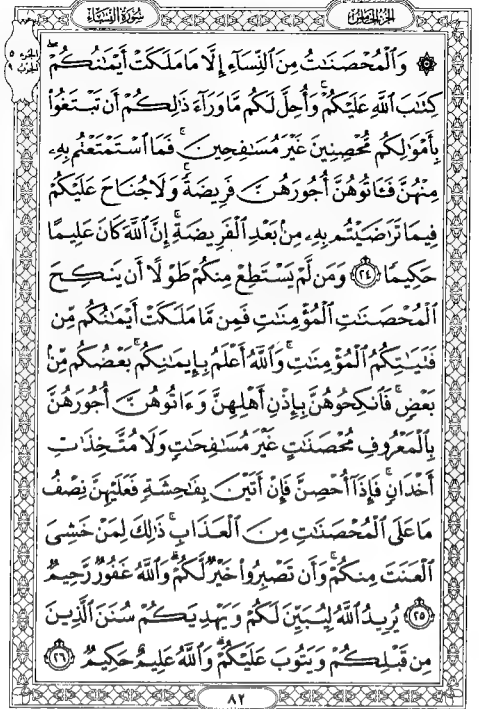 الجزء الخامس
سُورَةُ النِّسَاءِ
الجزء ٥
الحزب ٩
۞ وَٱلْمُحْصَنَٰتُ مِنَ ٱلنِّسَآءِ إِلَّا مَا مَلَكَتْ أَيْمَٰنُكُمْ ۖ
كِتَٰبَ ٱللَّهِ عَلَيْكُمْ ۚ وَأُحِلَّ لَكُم مَّا وَرَآءَ ذَٰلِكُمْ أَن تَبْتَغُوا۟
بِأَمْوَٰلِكُم مُّحْصِنِينَ غَيْرَ مُسَٰفِحِينَ ۚ فَمَا ٱسْتَمْتَعْتُم بِهِۦ
مِنْهُنَّ فَـَٔاتُوهُنَّ أُجُورَهُنَّ فَرِيضَةً ۚ وَلَا جُنَاحَ عَلَيْكُمْ
فِيمَا تَرَٰضَيْتُم بِهِۦ مِنۢ بَعْدِ ٱلْفَرِيضَةِ ۚ إِنَّ ٱللَّهَ كَانَ عَلِيمًا
حَكِيمًا ٢٤ وَمَن لَّمْ يَسْتَطِعْ مِنكُمْ طَوْلًا أَن يَنكِحَ
ٱلْمُحْصَنَٰتِ ٱلْمُؤْمِنَٰتِ فَمِن مَّا مَلَكَتْ أَيْمَٰنُكُم مِّن
فَتَيَٰتِكُمُ ٱلْمُؤْمِنَٰتِ ۚ وَٱللَّهُ أَعْلَمُ بِإِيمَٰنِكُم ۚ بَعْضُكُم مِّنۢ
بَعْضٍ ۚ فَٱنكِحُوهُنَّ بِإِذْنِ أَهْلِهِنَّ وَءَاتُوهُنَّ أُجُورَهُنَّ
بِٱلْمَعْرُوفِ مُحْصَنَٰتٍ غَيْرَ مُسَٰفِحَٰتٍ وَلَا مُتَّخِذَٰتِ
أَخْدَانٍ ۚ فَإِذَآ أُحْصِنَّ فَإِنْ أَتَيْنَ بِفَٰحِشَةٍ فَعَلَيْهِنَّ نِصْفُ
مَا عَلَى ٱلْمُحْصَنَٰتِ مِنَ ٱلْعَذَابِ ۚ ذَٰلِكَ لِمَنْ خَشِىَ
ٱلْعَنَتَ مِنكُمْ ۚ وَأَن تَصْبِرُوا۟ خَيْرٌ لَّكُمْ ۗ وَٱللَّهُ غَفُورٌ رَّحِيمٌ
٢٥ يُرِيدُ ٱللَّهُ لِيُبَيِّنَ لَكُمْ وَيَهْدِيَكُمْ سُنَنَ ٱلَّذِينَ
مِن قَبْلِكُمْ وَيَتُوبَ عَلَيْكُمْ ۗ وَٱللَّهُ عَلِيمٌ حَكِيمٌ ٢٦
٨٢